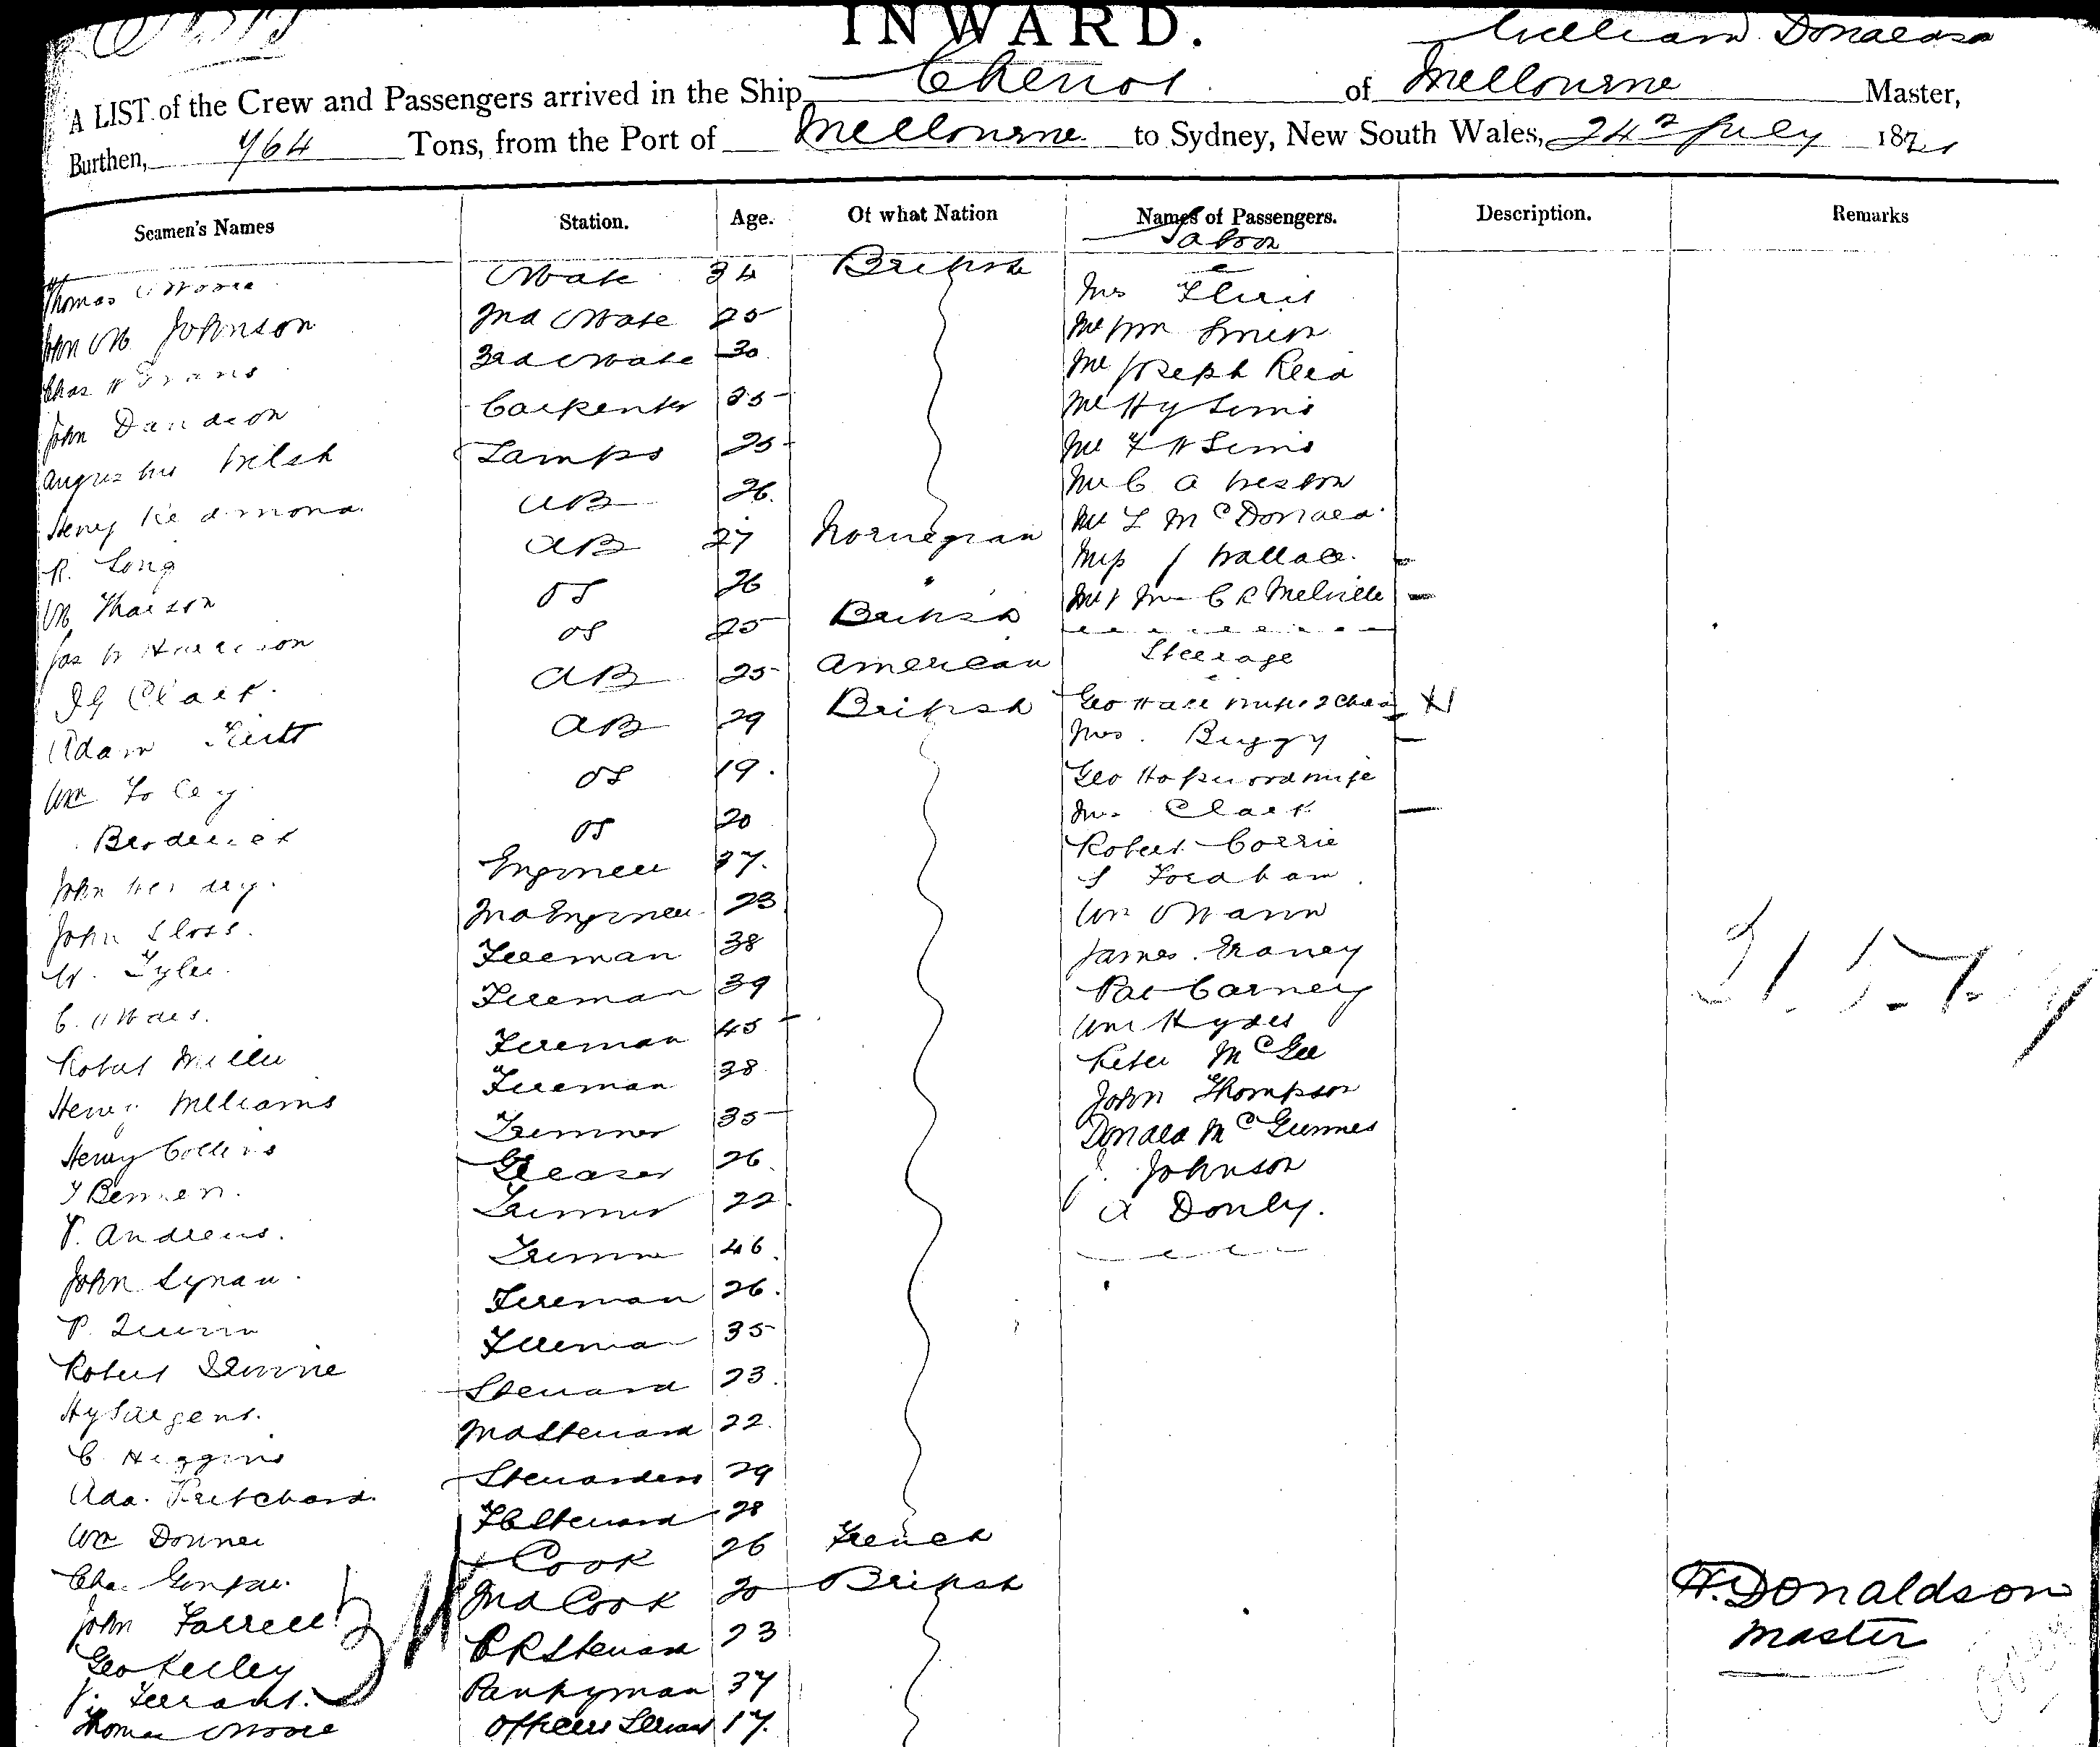 INWARD.
William Donaldson
A LIST of the Crew and Passengers arrived in the Ship Cheviot of Melbourne Master,
Burthen, 764 Tons, from the Port of Melbourne to Sydney, New South Wales, 24 July 187
Seamen's Names Station. Age. Of what Nation Names of Passengers. Description. Remarks
Saloon
Thomas Moore Mate 34 British Mrs
John M Johnson 2nd Mate 25 Mr Wm Smith
Chas H Evans 3rd Mate 30 Mr Joseph Reid
John Davidson Carpenter 35 Mr Hy Sims
Augustus Welsh Lamps 25 Mr F H Sims
Henry Redmond AB 26. Mr C A Weston
R. Long AB 27 Norwegian Mr L McDonald
OS 26 " Miss J Wallace.
Jas W Harrison OS 25 British Mr & Mrs C R Melville
J G Clark. AB 25 American Steerage
Adam AB 29 British Geo Hall wife & 2 Chdn
Wm Foley OS 19. Mrs. Buggy
Broderick OS 20 Geo Hopwood wife
John Engineer 37. Mrs Clark
John Sloss. 2nd Engineer 23 Robert Corrie
W. Tyler. Fireman 38 S Fordham
C. Fireman 39 Wm Mann
Robert Miller Fireman 45 James
Henry Williams Fireman 38 Pat Carney
Henry Collins Trimmer 35 Wm Hydes
Greaser 26 Peter McGee
P. Andrews. Trimmer 22 John Thompson
John Lynau. Trimmer 46 Donald McGuinnes
P. Quinn Fireman 26. J. Johnson
Robert Fireman 35 A Donly.
Hy Sargent. Steward 23.
C Higgins 2nd Steward 22.
Ada. Pritchard. Stewardess 29
Wm Donner FC Steward 28
Chas Cook 26 French
John Farrell 2nd Cook 20 British
Geo Kelley PR Steward 23
J. Pantryman 37
Thomas Moore Officers Servant 17.
W. Donaldson
Master